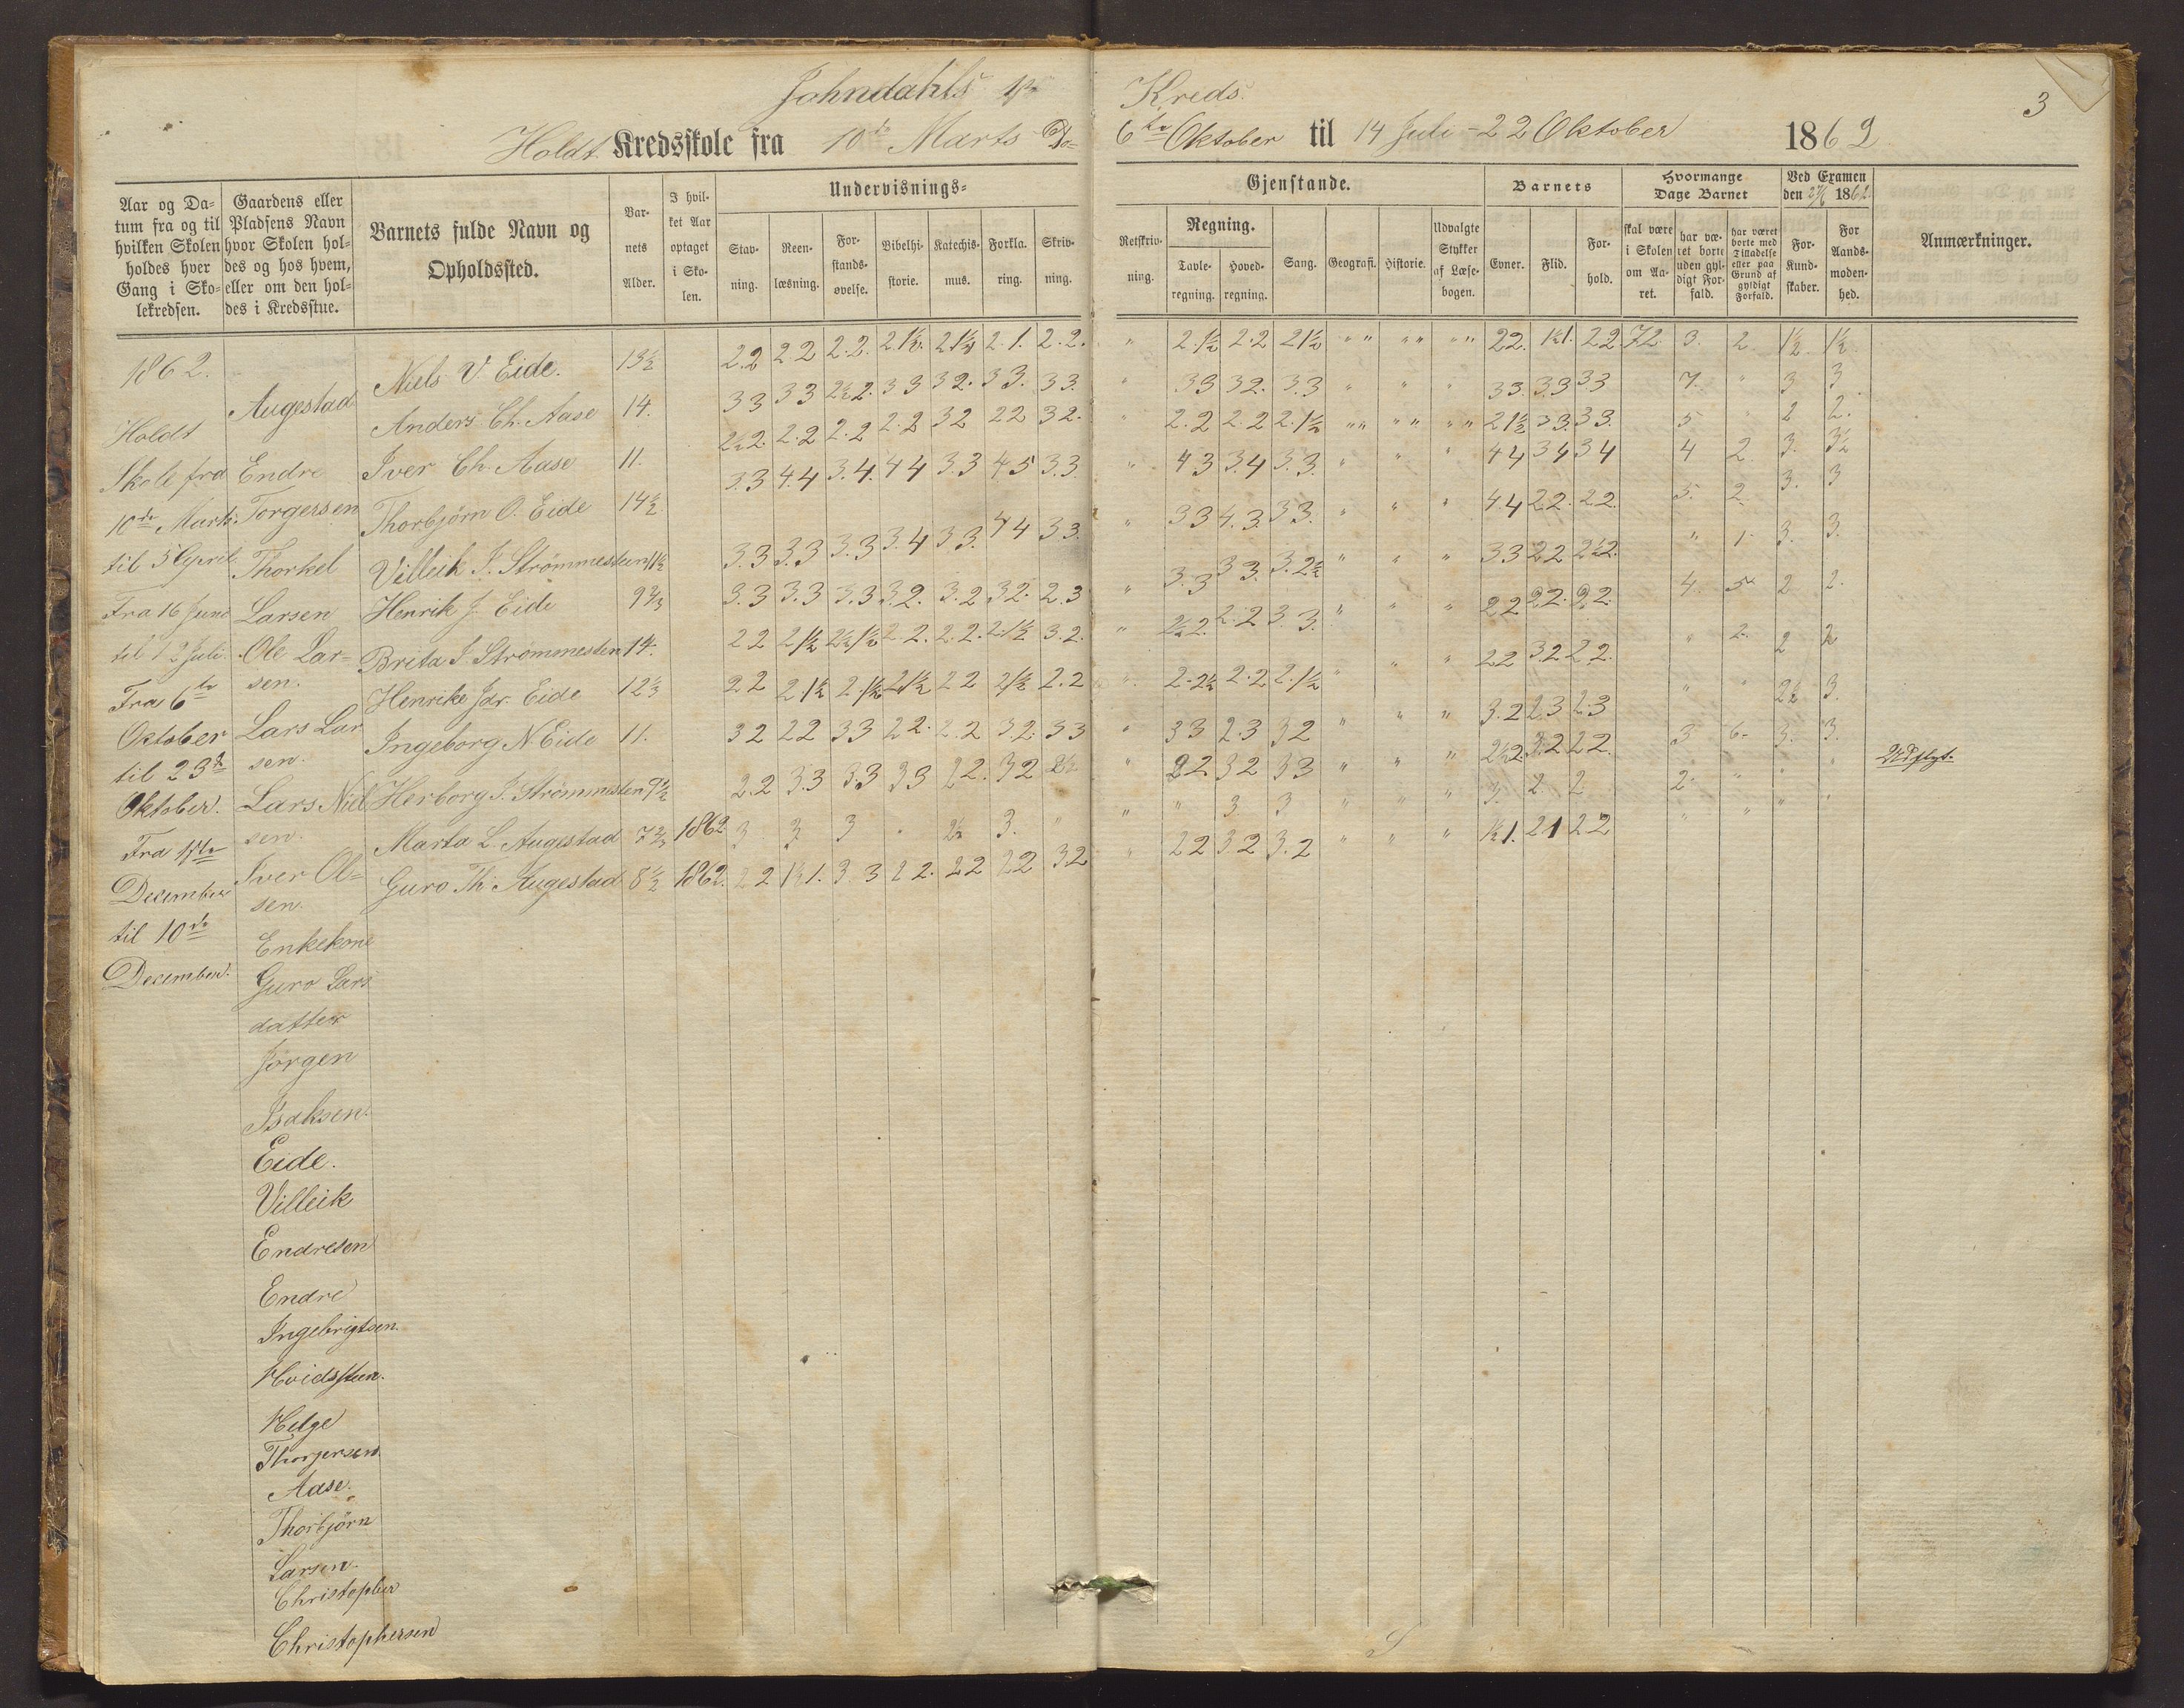 Johndahls 1ste Kreds.
3
Holdt Kredsskole fra 10de Marts 6te Oktober til 14 Juli - 22 Oktober 1862
Aar og Datum fra og til hvilken Skolen holdes hver Gang i Skolekredsen.
Gaardens eller Pladsens Navn hvor Skolen holdes og hos hvem, eller om den holdes i Kredsstue.
Barnets fulde Navn og Opholdssted.
Barnets Alder.
I hvilket Aar optaget i Skolen.
Undervisnings-Gjenstande.
Stavning.
Reenlæsning.
Forstandsøvelse.
Bibelhistorie.
Katechismus.
Forklaring.
Skrivning.
Retskrivning.
Regning.
Tavleregning.
Hovedregning.
Sang.
Geografi.
Historie.
Udvalgte Stykker af Læsebogen.
Barnets
Evner.
Flid.
Forhold.
Hvormange Dage Barnet
skal være i Skolen om Aaret.
har været borte uden gyldigt Forfald.
har været borte med Tilladelse eller paa Grund af gyldigt Forfald.
Ved Examen den 27/6 1862
For Kundskaber.
For Aandsmodenhed.
Anmærkninger.
1862.
Holdt
Skole fra
10de Marts
til 5 April
Fra 16 Juni
til 12 Juli.
Fra 6te
Oktober
til 23de
Oktober.
Fra 1ste
December
til 10de
December.
Augestad
Endre
Torgersen
Thorkel
Larsen
Ole Lar=
sen.
Lars Lar
sen.
Lars Niel
sen.
Iver Ol=
sen.
Enkekone
Guro Lars
datter
Jørgen
Isaksen.
Eide.
Villeik
Endresen
Endre
Ingebrigtsen.
Hvidsteen.
Helge
Thorgersen.
Aase.
Thorbjörn
Larsen.
Christopher
Christophersen
Niels V. Eide. 13½ 2.2 2 2 2.2. 2.1½. 2.1½ 2.1. 2.2. " 2.1½ 2.2 2 1½ " " " " " " 2 2. 1½1. 2 2. 72. 3. 2. 1½. 1½.
Anders Ch. Aase 14. 3 3 3 3 2½2. 3 3 3 2. 3 3. 3 3. " 3 3 3 2. 3.3 " " " 3 3. 3.3 3 3 7. " 3 3
Iver Ch. Aase 11. 2½2. 2.2 2.2 2.2 3 2 2 2 3 2. " 2.2 2.2 2.1½ " " " " " " 2 1½ 3 3. 3 3. 5 " 2 2.
Thorbjörn O. Eide 14½ 3.3 4.4 3.4. 4 4 3.3 4 5 3.3 " 4 3 3.4 3.3. " " " 4 4 3 4 3 4 4 2. 3. 3½
Villeik J. Strömmesteen 11½ 3.3 3.3 3.3 3.4 3 3. 4 4 3 3. " 3 3 4.3. 3 3. " " " 4.4 2 2. 2 2. 5. 2. 3. 3
Henrik J. Eide 9⅔ 3.3 3.3 3.3 3.2. 3.2 3 2. 2.3 " 3.3 3 3. 3.2½ " " " 3 3 2 2 2½2. " 1. 3. 3.
Brita J. Strömmesten 14. 2 2 2 1½ 2½1½ 2.2. 2.2. 2.1½ 3.2. " 2½2. 2.2 3 3. " " " 2 2 2 2. 2 2. 4. 5 2 2.
Henrike Jdr. Eide 12⅓ 2 2 2.1½ 2.1½ 2 1½ 2 2 2 1½ 2.2 " 2.2½ 2.2 2.1½ " " 2 2 3 2 2 2. " 2. 2 2
Ingeborg N Eide 11. 3 2 2 2 3 3 2 2. 2.2 3.2. 3 3 " 3 3 2.3 3 2 " " " 3.2 2 3 2.3 " " 2½ 3.
Herborg J. Strömmesten 9½ 2.2 3.3 3.3 3 3 2 2. 3 2 2½ " 2 2 3 2 3 3 " " " 2½2. 3.2 2 2. 3 6. 3. 3.
Marta L. Augestad 7⅔ 1862. 3. 3 3 " 2½ 3. " " " 3 3 " " " 3. 2. 2 2. " " " Udflyt.
Guro Th. Augestad 8½ 1862. 2 2 1½1. 3.3 2 2. 2 2 2 2 3.2 " 2 2 3 2 3.2 " " " 1½1. 2 1 2 2 " " " "